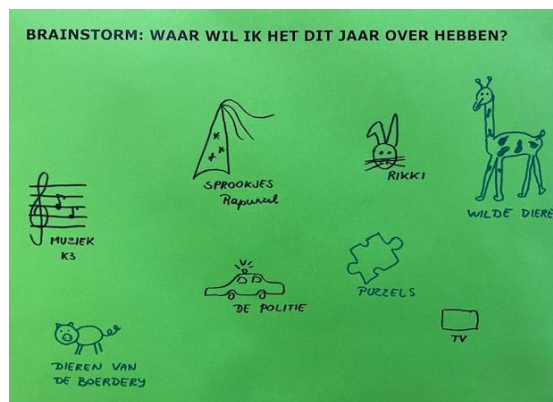 BRAINSTORM: WAAR WIL IK HET DIT JAAR OVER HEBBEN?
SPROOKJES
Rapunzel
RIKKI
WILDE DIERE
MUZIEK
K3
DE POLITIE
PUZZELS
TV
DIEREN VAN
DE BOERDERY